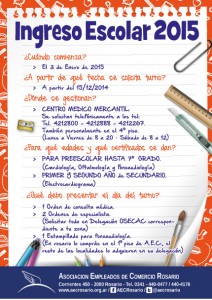 Ingreso Escolar 2015
¿Cuándo comienza?
> El 5 de Enero de 2015
¿A partir de qué fecha se solicita turno?
> A partir del 15/12/2014
¿Dónde se gestionan?
> CENTRO MEDICO MERCANTIL.
Se solicitan telefónicamente a los tel:
Tel. 4212800 - 4212888 - 4212267.
También personalmente en el 4º piso.
(Lunes a Viernes de 8 a 20 - Sábado de 8 a 12)
¿Para qué edades y qué certificados se dan?
> PARA PREESCOLAR HASTA 7º GRADO.
(Caradología, Oftalmología y Fonoaudiología)
> PRIMER y SEGUNDO AÑO de SECUNDARIO.
(Electrocardiograma)
¿Qué debe presentar el día del turno?
> 1 Orden de consulta médica.
> 2 Ordenes de especialista.
(Solicitar todo en Delegación OSECAC correspon-
diente a la zona)
> 1 Estampillado para Fonoaudiología.
(En rosario lo compran en el 1º piso de A.E.C., el
resto de las localidades lo adquieren en su delegación)
ASOCIACION EMPLEADOS DE COMERCIO ROSARIO
Corrientes 450 - 2000 Rosario - Tel. 0341 - 448-0477 / 440-4176
www.aecrosario.org.ar AECRosario @AECRosario